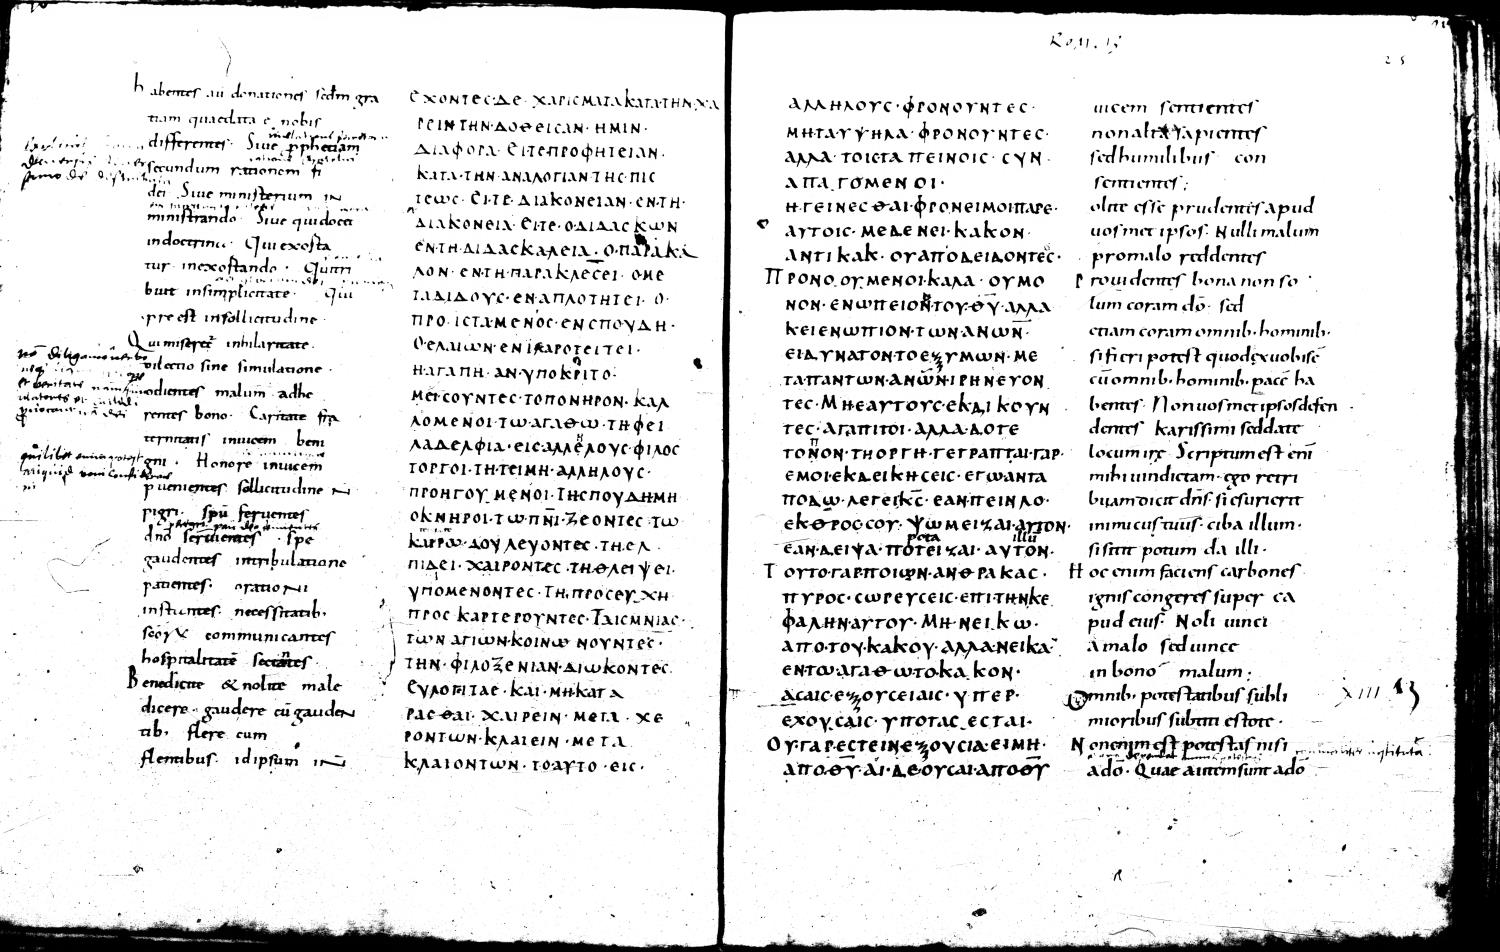 habentes aū donationes scdm gra
tiam quae data ē nobis
differentes. Siue prophetiam
secundum rationem fi
dei Siue ministerium in
ministrando. Siue qui docet
in doctrina. Qui exorta
tur in exortando. Qui tri
buit in simplicitate. Qui
preest in sollicitudine.
Qui miseret in hilaritate.
dilectio sine simulatione.
odientes malum adhe
rentes bono. Caritate fra
ternitatis inuicem beni
gni. Honore inuicem
puenientes sollicitudine n
pigri. spū feruentes
dn̄o seruientes. spe
gaudentes in tribulatione
patientes. orationi
instantes. necessitatib.
communicantes
hospitalitatē sectantes.
Benedicite & nolite male
dicere. gaudere cū gauden
tib. flere cum
flentibus. id ipsum in
ΕΧΟΝΤΕC·ΔΕ·ΧΑΡΙCΜΑΤΑ ΚΑΤΑ·ΤΗΝ ΧΑ
ΡΕΙΝ ΤΗΝ·ΔΟΘΕΙCΑΝ·ΗΜΙΝ·
ΔΙΑΦΟΡΑ·ΕΙΤΕ ΠΡΟΦΗΤΕΙΑΝ·
ΚΑΤΑ·ΤΗΝ·ΑΝΑΛΟΓΙΑΝ ΤΗC·ΠΙC
ΤΕΩC·ΕΙΤΕ·ΔΙΑΚΟΝΕΙΑΝ·ΕΝ·ΤΗ·
ΔΙΑΚΟΝΕΙΑ·ΕΙΤΕ·Ο·ΔΙΔΑCΚΩΝ
ΕΝ·ΤΗ·ΔΙΔΑCΚΑΛΕΙΑ·Ο·ΠΑΡΑΚΑ
ΛΟΝ·ΕΝ·ΤΗ·ΠΑΡΑΚΛΕCΕΙ·Ο·ΜΕ
ΤΑΔΙΔΟΥC·ΕΝ·ΑΠΛΟΤΗΤΕΙ·Ο·
ΠΡΟ·ΙCΤΑΜΕΝΟC·ΕΝ CΠΟΥΔΗ·
Ο·ΕΛΑΙΩΝ·ΕΝ ΙΛΑΡΟΤΕΙΤΕΙ·
Η·ΑΓΑΠΗ·ΑΝ·ΥΠΟΚΡΙΤΟ·
ΜΕΙCΟΥΝΤΕC·ΤΟ ΠΟΝΗΡΟΝ·ΚΑΛ
ΛΟΜΕΝΟΙ·ΤΩ ΑΓΑΘΩ·ΤΗ ΦΕΙ
ΛΑΔΕΛΦΙΑ·ΕΙC·ΑΛΛΕΛΟΥC·ΦΙΛΟC
ΤΟΡΓΟΙ·ΤΗ·ΤΕΙΜΗ·ΑΛΛΗΛΟΥC·
ΠΡΟΗΓΟΥΜΕΝΟΙ·ΤΗ CΠΟΥΔΗ ΜΗ
ΟΚΝΗΡΟΙ·ΤΩ·ΠΝΙ·ΖΕΟΝΤΕC·ΤΩ
ΚΑΙΡΩ·ΔΟΥΛΕΥΟΝΤΕC·ΤΗ·ΕΛ
ΠΙΔΕΙ·ΧΑΙΡΟΝΤΕC·ΤΗ·ΘΛΕΙΨΕΙ·
ΥΠΟΜΕΝΟΝΤΕC·ΤΗ·ΠΡΟCΕΥΧΗ·
ΠΡΟC ΚΑΡΤΕΡΟΥΝΤΕC·ΤΑΙC ΜΝΙΑC·
ΤΩΝ ΑΓΙΩΝ·ΚΟΙΝΩΝΟΥΝΤΕC·
ΤΗΝ·ΦΙΛΟΞΕΝΙΑΝ·ΔΙΩΚΟΝΤΕC·
ΕΥΛΟΓΙΤΑΕ·ΚΑΙ·ΜΗ·ΚΑΤΑ
ΡΑCΘΑΙ·ΧΑΙΡΕΙΝ·ΜΕΤΑ·ΧΕ
ΡΟΝΤΩΝ·ΚΛΑΙΕΙΝ·ΜΕΤΑ
ΚΛΑΙΟΝΤΩΝ·ΤΟ·ΑΥΤΟ·ΕΙC·
Rom. 13
25
ΑΛΛΗΛΟΥC·ΦΡΟΝΟΥΝΤΕC·
ΜΗ·ΤΑ·ΥΨΗΛΑ·ΦΡΟΝΟΥΝΤΕC·
ΑΛΛΑ·ΤΟΙC ΤΑΠΕΙΝΟΙC·CΥΝ·
ΑΠΑΓΟΜΕΝΟΙ·
Η·ΓΕΙΝΕCΘΑΙ·ΦΡΟΝΕΙΜΟΙ·ΠΑΡΕ·
ΑΥΤΟΙC·ΜΕΔΕΝΕΙ·ΚΑΚΟΝ·
ΑΝΤΙ ΚΑΚ·ΟΥ ΑΠΟΔΕΙΔΟΝΤΕC·
ΠΡΟΝΟΟΥΜΕΝΟΙ·ΚΑΛΑ·ΟΥ ΜΟ
ΝΟΝ·ΕΝΩΠΕΙΟΝ·ΤΟΥ·ΘΥ·ΑΛΛΑ
ΚΕΙ ΕΝΩΠΙΟΝ·ΤΩΝ·ΑΝΩΝ·
ΕΙ ΔΥΝΑΤΟΝ·ΤΟ ΕΞ ΥΜΩΝ·ΜΕ
ΤΑ ΠΑΝΤΩΝ·ΑΝΩΝ·ΙΡΗΝΕΥΟΝ
ΤΕC·ΜΗ ΕΑΥΤΟΥC·ΕΚΔΙΚΟΥΝ
ΤΕC·ΑΓΑΠΙΤΟΙ·ΑΛΛΑ·ΔΟΤΕ
ΤΟΠΟΝ·ΤΗ ΟΡΓΗ·ΓΕΓΡΑΠΤΑΙ·ΓΑΡ·
ΕΜΟΙ·ΕΚΔΕΙΚΗCΕΙC·ΕΓΩ ΑΝΤΑ
ΠΟΔΩ·ΛΕΓΕΙ ΚC·ΕΑΝ·ΠΕΙΝ ΛΟ·
ΕΚΘΡΟC CΟΥ·ΨΩΜΕΙΖΑΙ·ΑΥΤΟΝ·
ΕΑΝ·ΔΕΙΨΑ·ΠΟΤΕΙΖΑΙ·ΑΥΤΟΝ·
ΤΟΥΤΟ·ΓΑΡ·ΠΟΙΩΝ·ΑΝΘΡΑΚΑC·
ΠΥΡΟC·CΩΡΕΥCΕΙC·ΕΠΙ·ΤΗΝ ΚΕ
ΦΑΛΗΝ·ΑΥΤΟΥ·ΜΗ·ΝΕΙΚΩ·
ΑΠΟ·ΤΟΥ·ΚΑΚΟΥ·ΑΛΛΑ·ΝΕΙΚΑ·
ΕΝ ΤΩ·ΑΓΑΘΩ ΤΟ·ΚΑΚΟΝ·
ΑCΑΙC·ΕΞΟΥCΕΙΑΙC·ΥΠΕΡ·
ΕΧΟΥCΑΙC·ΥΠΟΤΑCΕCΤΑΙ·
ΟΥ·ΓΑΡ·ΕCΤΕΙΝ·ΕΞΟΥCΙΑ·ΕΙ ΜΗ·
ΑΠΟ·ΘΥ·ΑΙ·ΔΕ·ΟΥCΑΙ·ΑΠΟ·ΘΥ
uicem sentientes
non alta sapientes
sed humilibus con
sentientes;
olite esse prudentes apud
uosmet ipsos. Nulli malum
pro malo reddentes
Prouidentes bona non so
lum coram dō. sed
etiam coram omnib. hominib.
si fieri potest quod ex uobis ē
cū omnib. hominib. pacē ha
bentes. Non uosmet ipsos defen
dentes karissimi sed date
locum irę. Scriptum est enī
mihi uindictam. ego retri
buam dicit dn̄s. si esurierit
inimicus tuus. ciba illum.
si sitit potum da illi.
Hoc enim faciens carbones
ignis congeres super ca
pud eius. Noli uinci
a malo sed uince
in bono malum;
Omnib. potestatibus subli
mioribus subditi estote.
Non enim est potestas nisi
a dō. Quae autem sunt a dō
XIII 13